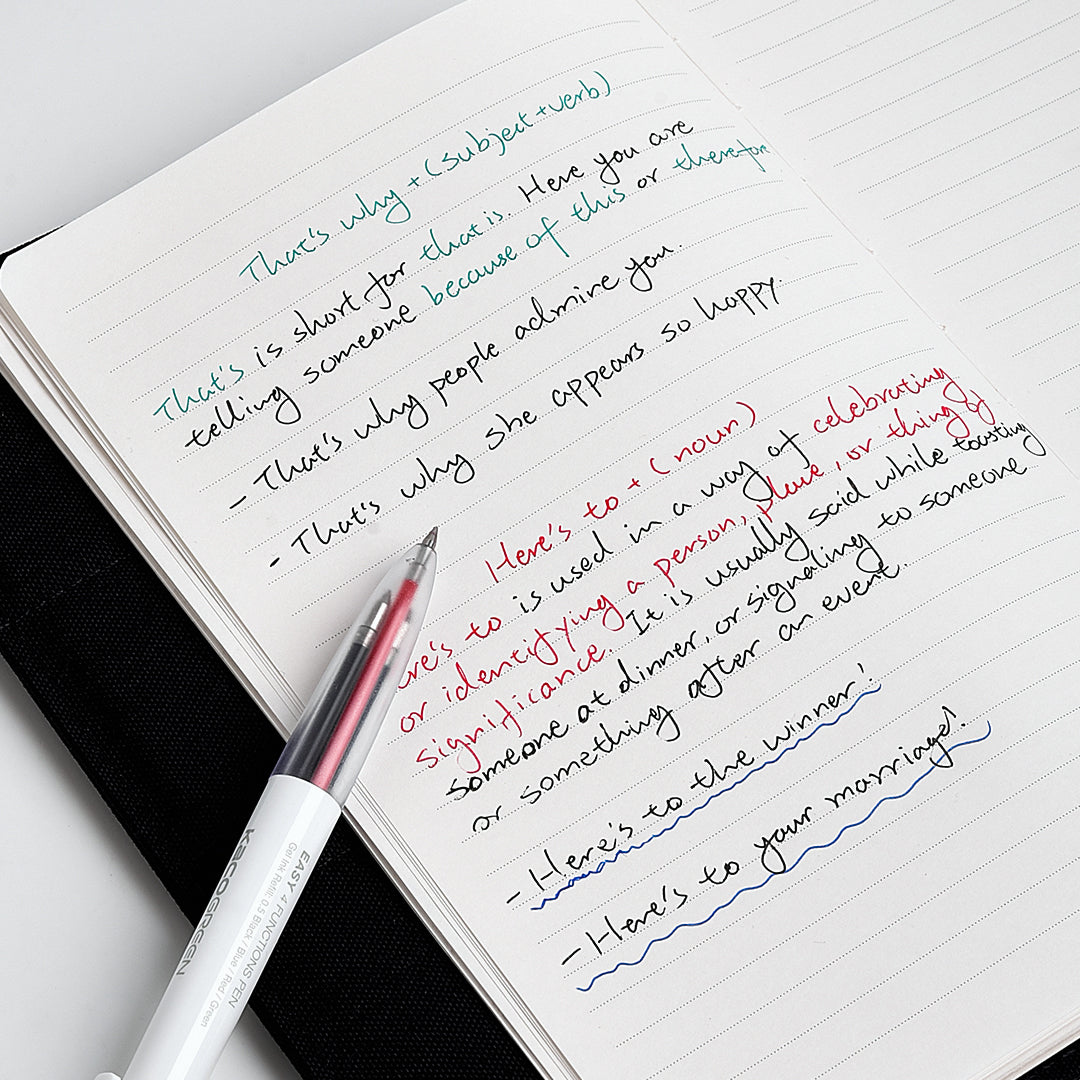 That's why + (subject + verb)
That's is short for that is. Here you are
telling someone because of this or therefore
- That's why people admire you.
- That's why she appears so happy
Here's to + (noun)
ere's to is used in a way of celebrating
or identifying a person, place, or thing of
significance. It is usually said while toasting
someone at dinner, or signaling to someone
or something after an event.
- Here's to the winner!
- Here's to your marriage!
KACOGREEN
EASY 4 FUNCTIONS PEN
Gel Ink Refill: 0.5 Black / Blue / Red / Green